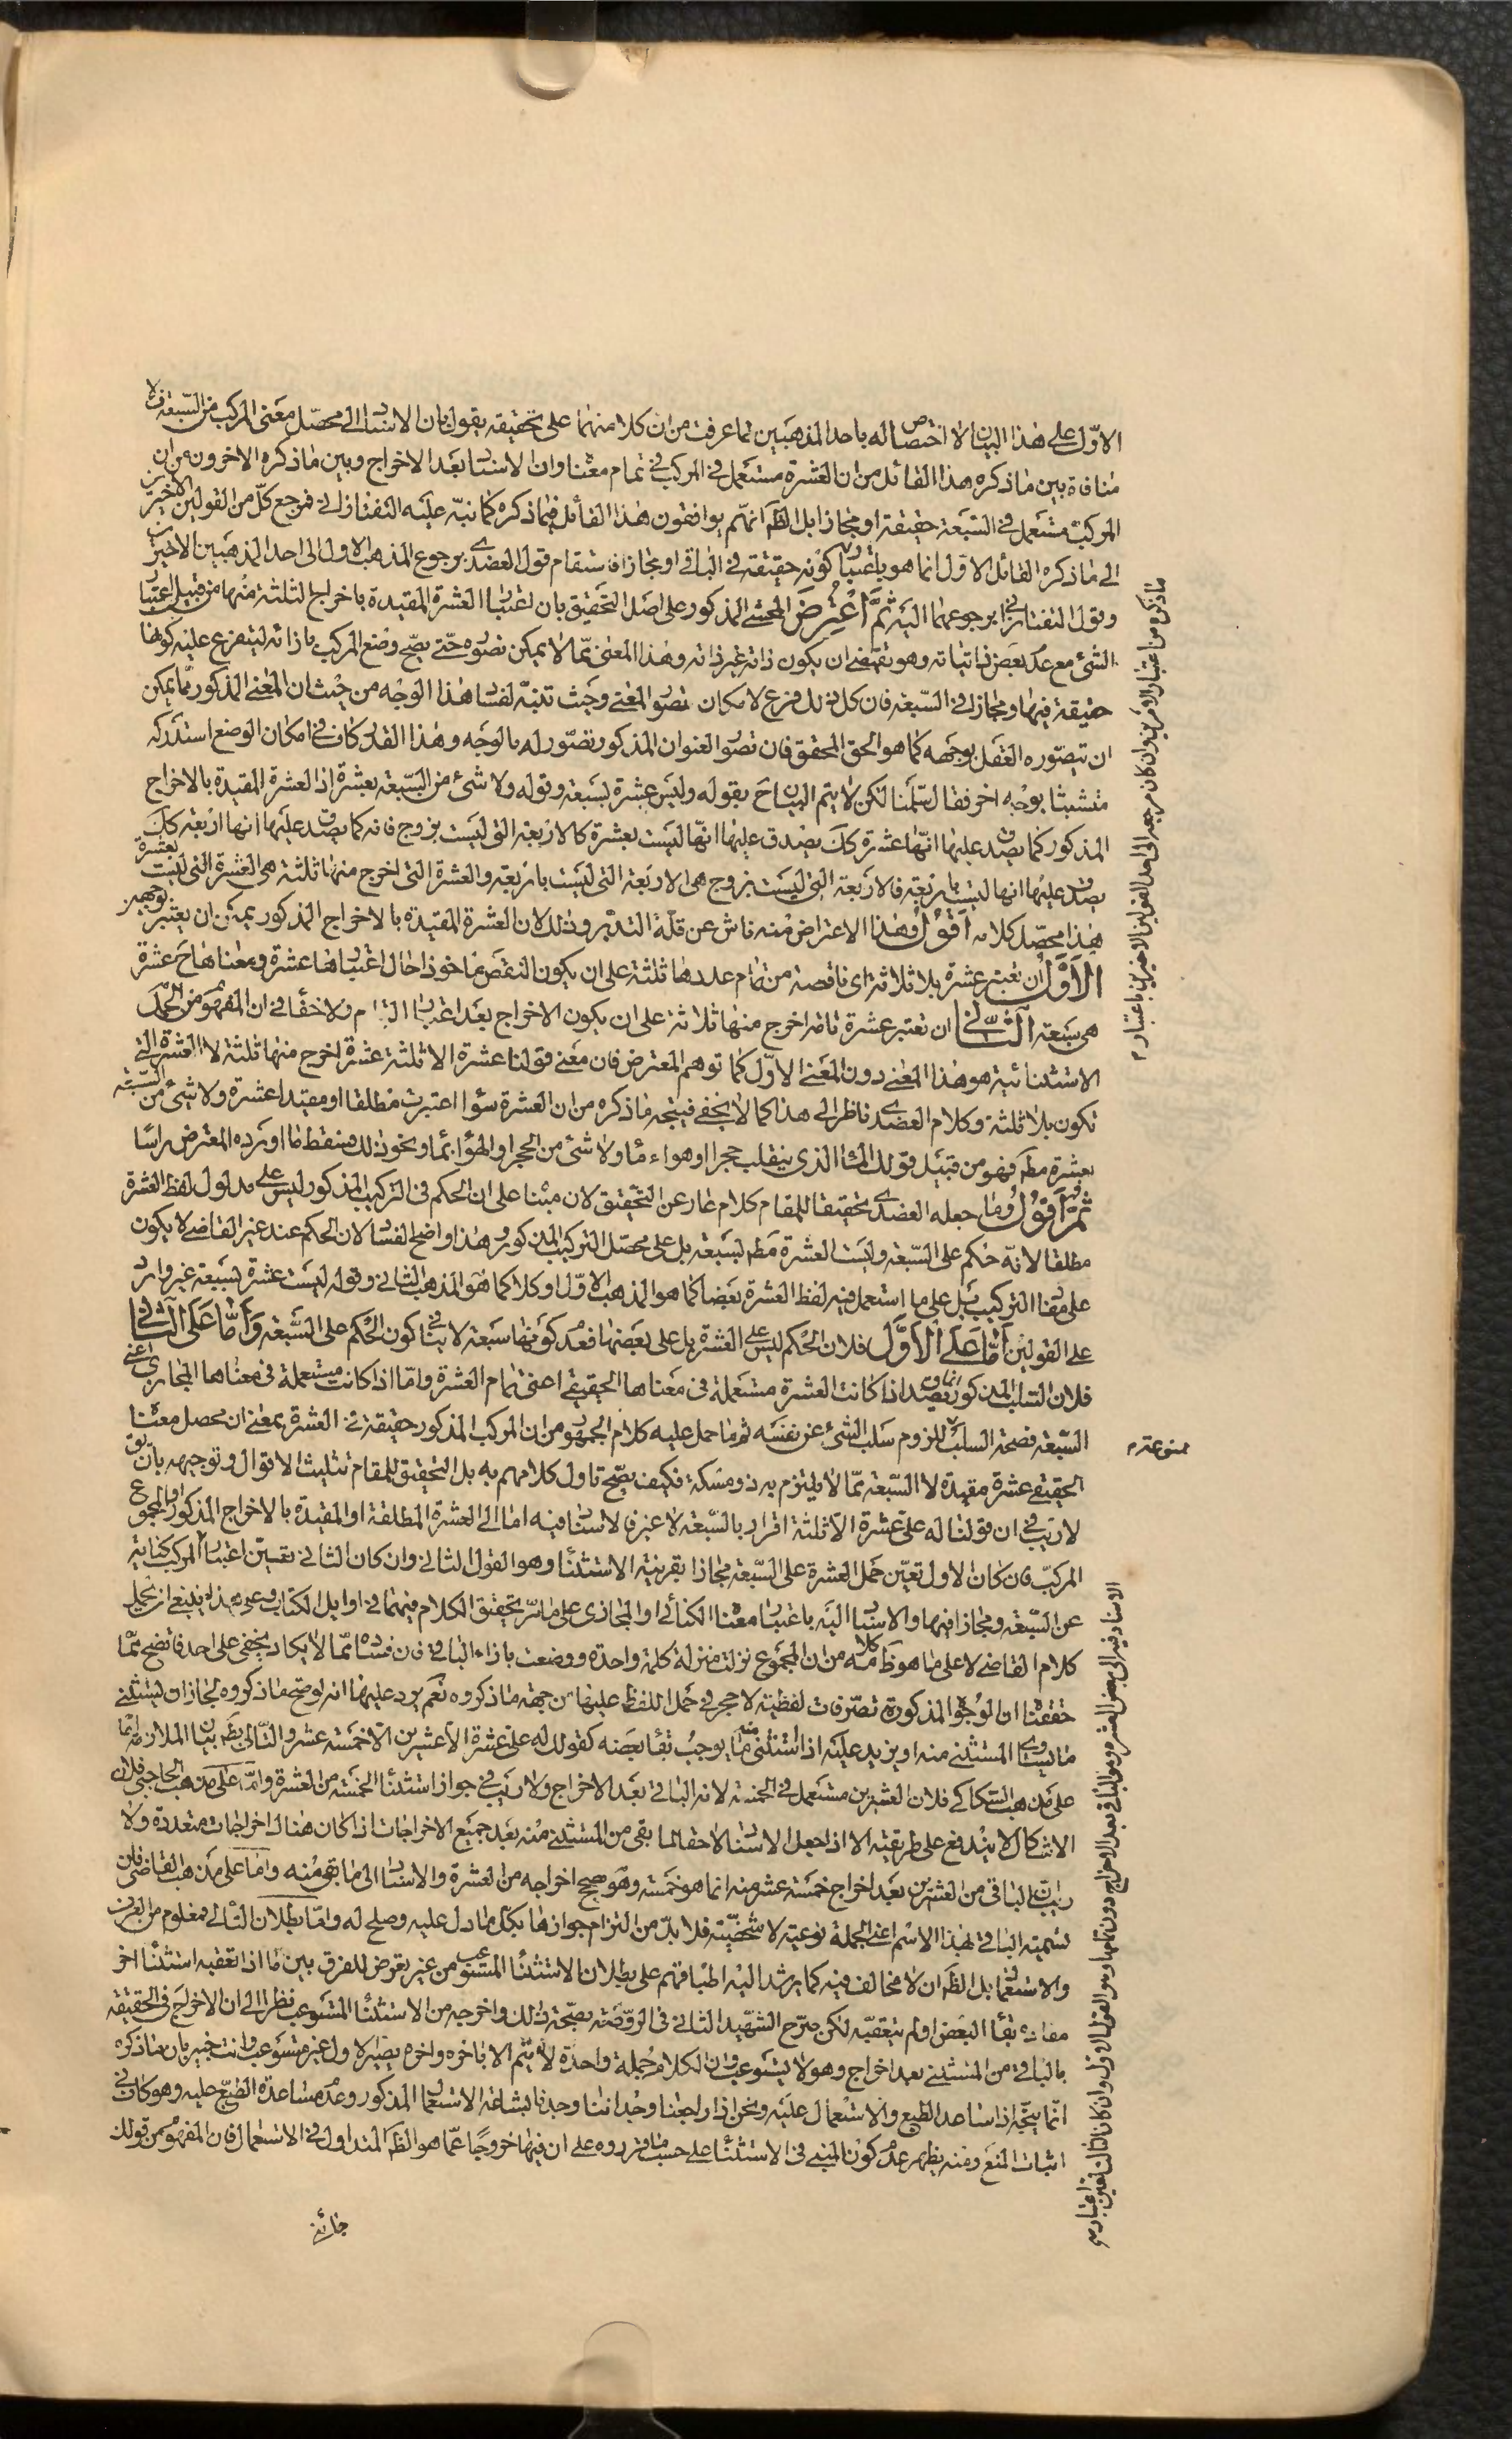 الاوّل على هذا البيان لا اختصاص له باحد المذهبين لما عرفت من ان كلا منهما على تحقيقه يقول بان الاسناد الى محصّل معنى المركب من السّبعة فلا
منافاة بين ما ذكره هذا القائل من ان العشرة مستعمل في المركب في تمام معناه وان الاسناد بعد الاخراج وبين ما ذكره الاخرون من ان
المركبة مستعمل في السّبعة حقيقة او مجازا بل الظّ انهم يوافقون هذا القائل فيما ذكره كما نبّه عليه التفتازاني فمرجع كلّ من القولين الاخيرين
الى ما ذكره القائل الاوّل انما هو باعتبار كونه حقيقة في الباقي او مجازا فاستقام قول العضدي برجوع المذهب الاول الى احد المذهبين الاخيرين
وقول التفتازاني برجوعهما اليه ثمّ اعترض المحشي المذكور على اصل التحقيق بان اعتبار العشرة المقيدة باخراج الثلثة منها من قبيل اعتبار
الشيء مع عدم بعض ذاتياته وهو يقتضي ان يكون ذاته غير ذاته وهذا المعنى ممّا لا يمكن تصوره حتّى يصحّ وضع المركب بازائه ليتفرع عليه كونها
حقيقة فيها ومجازا في السّبعة فان كل ذلك فرع لامكان تصور المعنى وحيث تنبّه لفساد هذا الوجه من حيث ان المعنى المذكور مما يمكن
ان يتصوّره العقل بوجهه كما هو الحق المحقق فان تصور العنوان المذكور تصّور له بالوجه وهذا القدر كاف في امكان الوضع استدركه
متشبثا بوجه اخر فقال سلّمنا لكن لا يتم البيان ح بقوله وليس عشرة بسبعة وقوله ولا شئ من السّبعة بعشرة اذ العشرة المقيدة بالاخراج
المذكور كما يصدق عليها انّها عشرة كك يصدق عليها انّها ليست بعشرة كالاربعة التي ليست بزوج فانه كما يصدق عليها انها اربعة كك
يصدق عليها انها ليست باربعة فالاربعة التي ليست بزوج هي الاربعة التي ليست باربعة والعشرة التي اخرج منها ثلثة هي العشرة التي ليست بعشرة
هذا محصّل كلامه اقول وهذا الاعتراض منه ناش عن قلّة التدبّر وذلك لان العشرة المقيدة بالاخراج المذكور يمكن ان يعتبر بوجهين
الاوّل ان تعتبر عشرة بلا ثلاثة اى ناقصة من تمام عددها ثلثة على ان يكون النقص ماخوذا حال اعتبارها عشرة ومعناها ح عشرة
هي سبعة الثّاني ان تعتبر عشرة تامّة اخرج منها ثلاثة على ان يكون الاخراج بعد اعتبار التمام ولا خفأ في ان المفهوم من الجمل
الاستثنائية هو هذا المعنى دون المعنى الاوّل كما توهم المعترض فان معنى قولنا عشرة الا ثلثة عشرة اخرج منها ثلثة لا العشرة التي
تكون بلا ثلثة وكلام العضدي ناظر الى هذا كما لا يخفى فيتجه ما ذكره من ان العشرة سواء اعتبرت مطلقا او مقيدا عشرة ولا شئ من السبعة
بعشرة مطّ فهو من قبيل قولك الماء الذي ينقلب حجرا او هواء ماء ولا شئ من الحجر او الهواء بماء ونحو ذلك فسقط ما اورده المعترض راسا
ثمّ اقول وفيما جعله العضدي تحقيقا للمقام كلام عار عن التّحقيق لان مبناه على ان الحكم في التركيب المذكور ليس على مدلول لفظ العشرة
مطلقا لانّه حكم على السّبعة وليست العشرة مطّ بسبعة بل على محصّل التركيب المذكور وهذا واضح الفساد لان الحكم عند غير القاضى لا يكون
على مفاد التركيب بل على ما استعمل فيه لفظ العشرة بعضا كما هو المذهب الاوّل او كلا كما هو المذهب الثاني وقوله ليست عشرة بسبعة غير وارد
على القولين امّا على الاوّل فلان الحكم ليس على العشرة بل على بعضها فعدم كونها سبعة لا ينافي كون الحكم على السّبعة وامّا على الثاني
فلان السلب المذكور انما يصدق اذا كانت العشرة مستعملة في معناها الحقيقي اعنى تمام العشرة وامّا اذا كانت مستعملة في معناها المجازي اعنى
السّبعة فصحة السلب للزوم سلب الشيء عن نفسه ثم ما حمل عليه كلام الجمهور من ان المركب المذكور حقيقة في العشرة بمعنى ان محصل معناه
الحقيقي عشرة مقيدة لا السّبعة ممّا لا يلتزم به ذو مسكة فكيف يصّح تاول كلامهم به بل التحقيق للمقام تثليث الاقوال وتوجيهه بان يق
لا ريب في ان قولنا له عليّ عشرة الّا ثلثة اقرار بالسّبعة لا غير فالاسناد فيه اما الى العشرة المطلقة او المقيدة بالاخراج المذكور او المجموع
المركبّ فان كان الاول تعيّن حمل العشرة على السّبعة مجازا بقرينة الاستثناء وهو القول الثاني وان كان الثاني تعين اعتبار المركب كناية
عن السّبعة ومجازا فيها والاسناد اليه باعتبار معناه الكنائي او المجازي على ما مرّ تحقيق الكلام فيهما في اوايل الكتاب وعلى هذه ينبغي ان يحمل
كلام القاضي لا على ما هو ظاهر كلامه من ان المجموع نزلت منزلة كلمة واحدة ووضعت بازاء الباقي فان فساده ممّا لا يكاد يخفى على احد فاتضح ممّا
حققنا ان الوجوه المذكورة تصّرفات لفظية لا حجر في حمل اللفظ عليها من جهة ما ذكروه نعم يرد عليها انه لو صّح ما ذكروه لجاز ان يستثنى
ما يساوي المستثنى منه او يزيد عليه اذا استثنى منه ما يوجب بقاء بعضه كقولك له عليّ عشرة الّا عشرين الّا خمسة عشر والتّالي بطّ بيان الملازمة امّا
على مذهب السّكاكي فلان العشرين مستعمل في الخمسة لانه الباقي بعد الاخراج ولا ريب في جواز استثناء الخمسة من العشرة وامّا على مذهب الحاجبي فلان
الاشكال لا يندفع على طريقته الا اذا جعل الاسناد لاحقا لما بقى من المستثنى منه بعد جميع الاخراجات اذا كان هناك اخراجات متعددة ولا
ريب ان الباقي من العشرين بعد اخراج خمسة عشر منه انما هو خمسة وهو صحيح اخراجه من العشرة والاسناد الى ما بقي منه وامّا على مذهب القاضي فلان
تسمية الباقي بهذا الاسم اعنى الجملة نوعية لا شخصيّة فلا بدّ من التزام جوازها بكل ما دل عليه وصلح له وامّا بطلان التالي فمعلوم من العرف
والاستعمال بل الظّ ان لا مخالف فيه كما يرشد اليه اطباقهم على بطلان الاستثناء المستوعب من غير تعرض للفرق بين ما اذا تعقبه استثناء اخر
مفاده بقاء البعض او لم يتعقبه لكن صرّح الشهيد الثاني في الروضة بصّحة ذلك واخرجه من الاستثناء المستوعب نظرا الى ان الاخراج في الحقيقة
بالباقي من المستثنى بعد اخراج وهو لا يستوعب وان الكلام جملة واحدة لا يتم الا باخره واخره يصير الاول غير مستوعب وانت خبير بان ما ذكره
انّما يتجّه اذا ساعد الطبع والاستعمال عليه ونحن اذا راجعنا وجداننا وجدنا بشاعة الاستعمال المذكور وعدم مساعدة الطبع عليه وهو كاف في
اثبات المنع ومنه يظهر عدم كون المبنى في الاستثناء على حسب ما قرروه على ان فيها خروجًا عمّا هو الظّ المتداول في الاستعمال فان المفهوم من قولك
جائني
ما ذكره من اعتبار الامرين وان كان مرجعه الى احد القولين الاخيرين باعتبار م
ممنوعة م
الاسناد فيه الى بعض العشرة وهو الباقي بعد الاخراج دون تمامها وهو القول الاول وان كان الثالث تعين اعتبار م